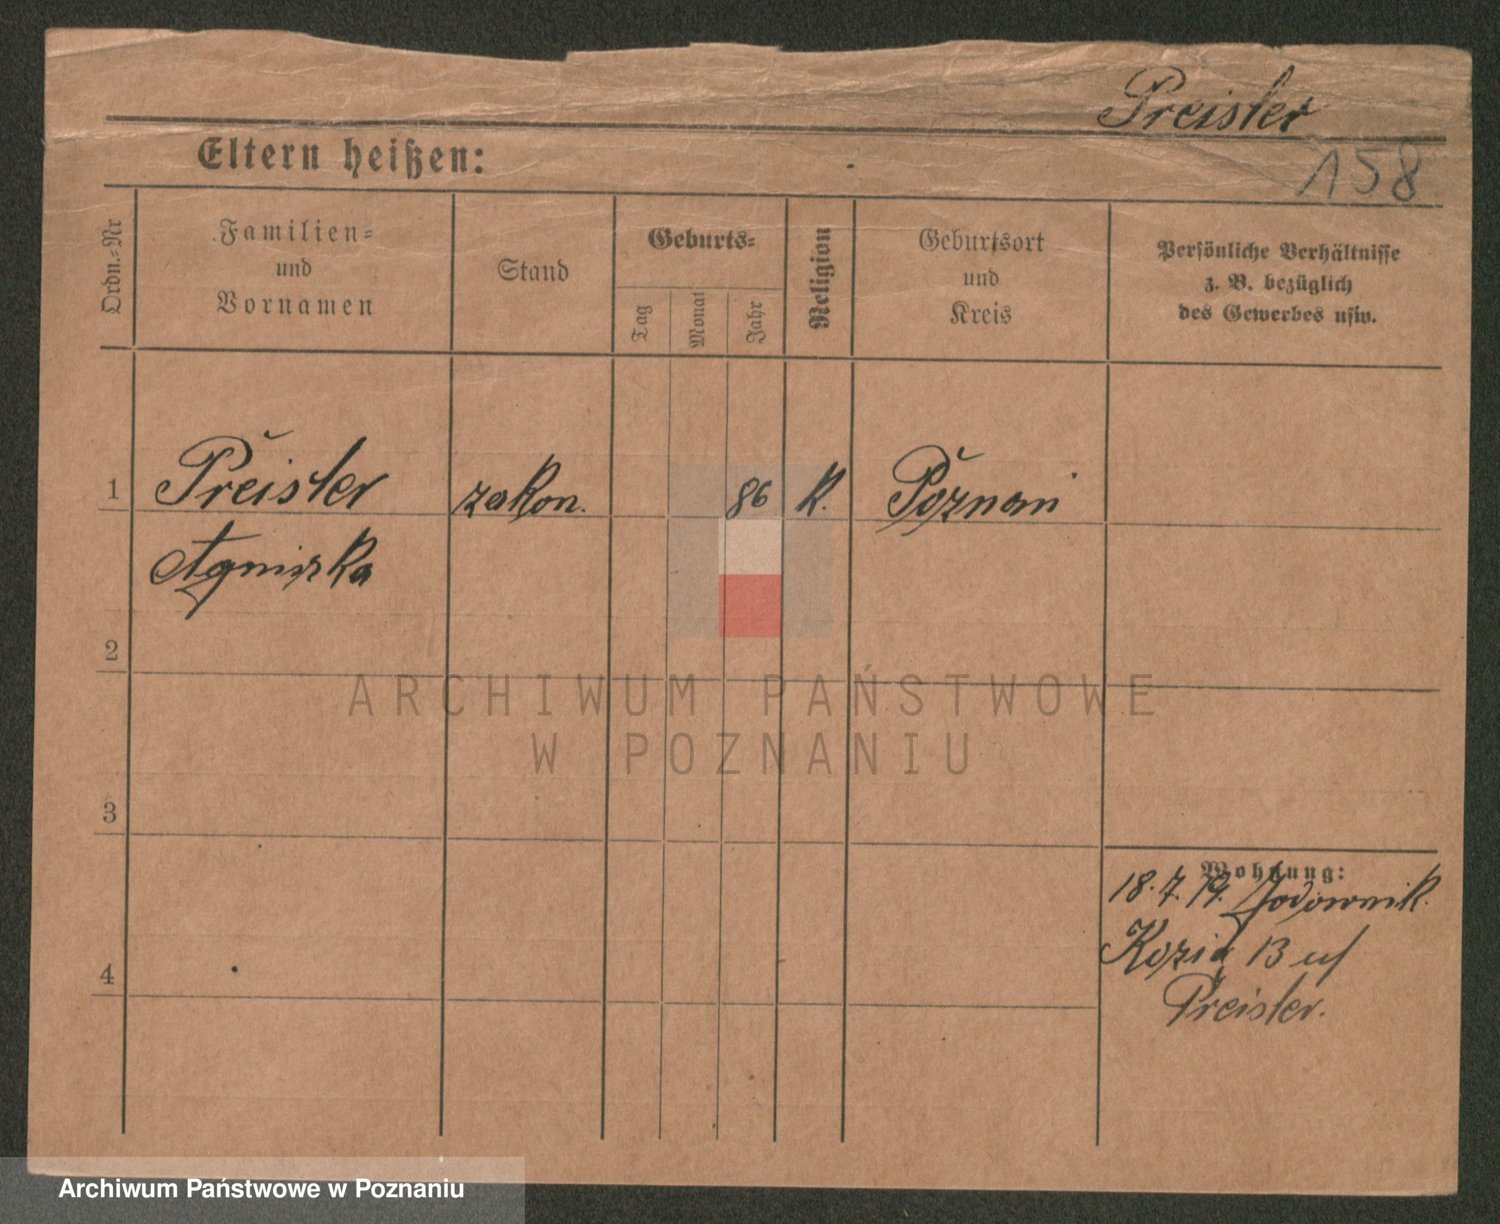 Preisler
158
Eltern heißen:
Ordn.-Nr
Familien-
und
Vornamen
Stand
Geburts-
Tag
Monat
Jahr
Religion
Geburtsort
und
Kreis
Persönliche Verhältnisse
z. B. bezüglich
des Gewerbes usw.
1 Preisler zakon. 86 K. Poznań
Agniszka
2
3
4
Wohnung:
18.7.19.
Kozia 13 u/
Preisler.
ARCHIWUM PAŃSTWOWE
W POZNANIU
Archiwum Państwowe w Poznaniu